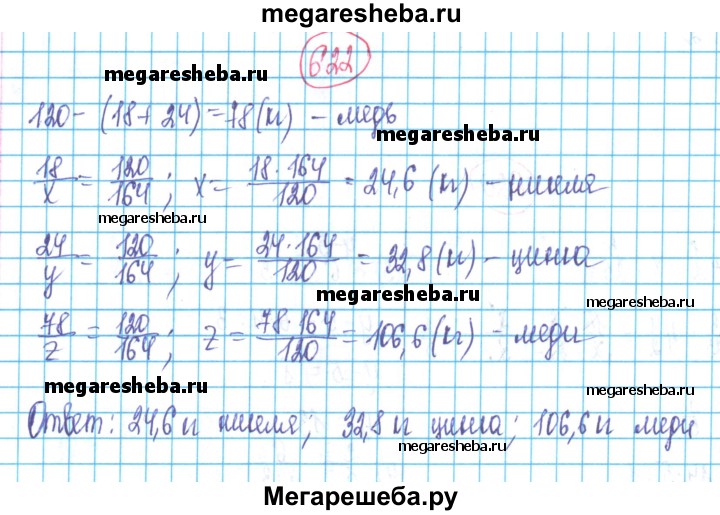 megaresheba.ru
622
megaresheba.ru
120 - (18 + 24) = 78 (кг) - медь
megaresheba.ru
18/x = 120/164; x = 18·164/120 = 24,6 (кг) - никеля
megaresheba.ru
24/y = 120/164; y = 24·164/120 = 32,8 (кг) - цинка
megaresheba.ru
megaresheba.ru
78/z = 120/164; z = 78·164/120 = 106,6 (кг) - меди
megaresheba.ru
megaresheba.ru
Ответ: 24,6 кг никеля; 32,8 кг цинка; 106,6 кг меди
megaresheba.ru
Мегарешеба.ру